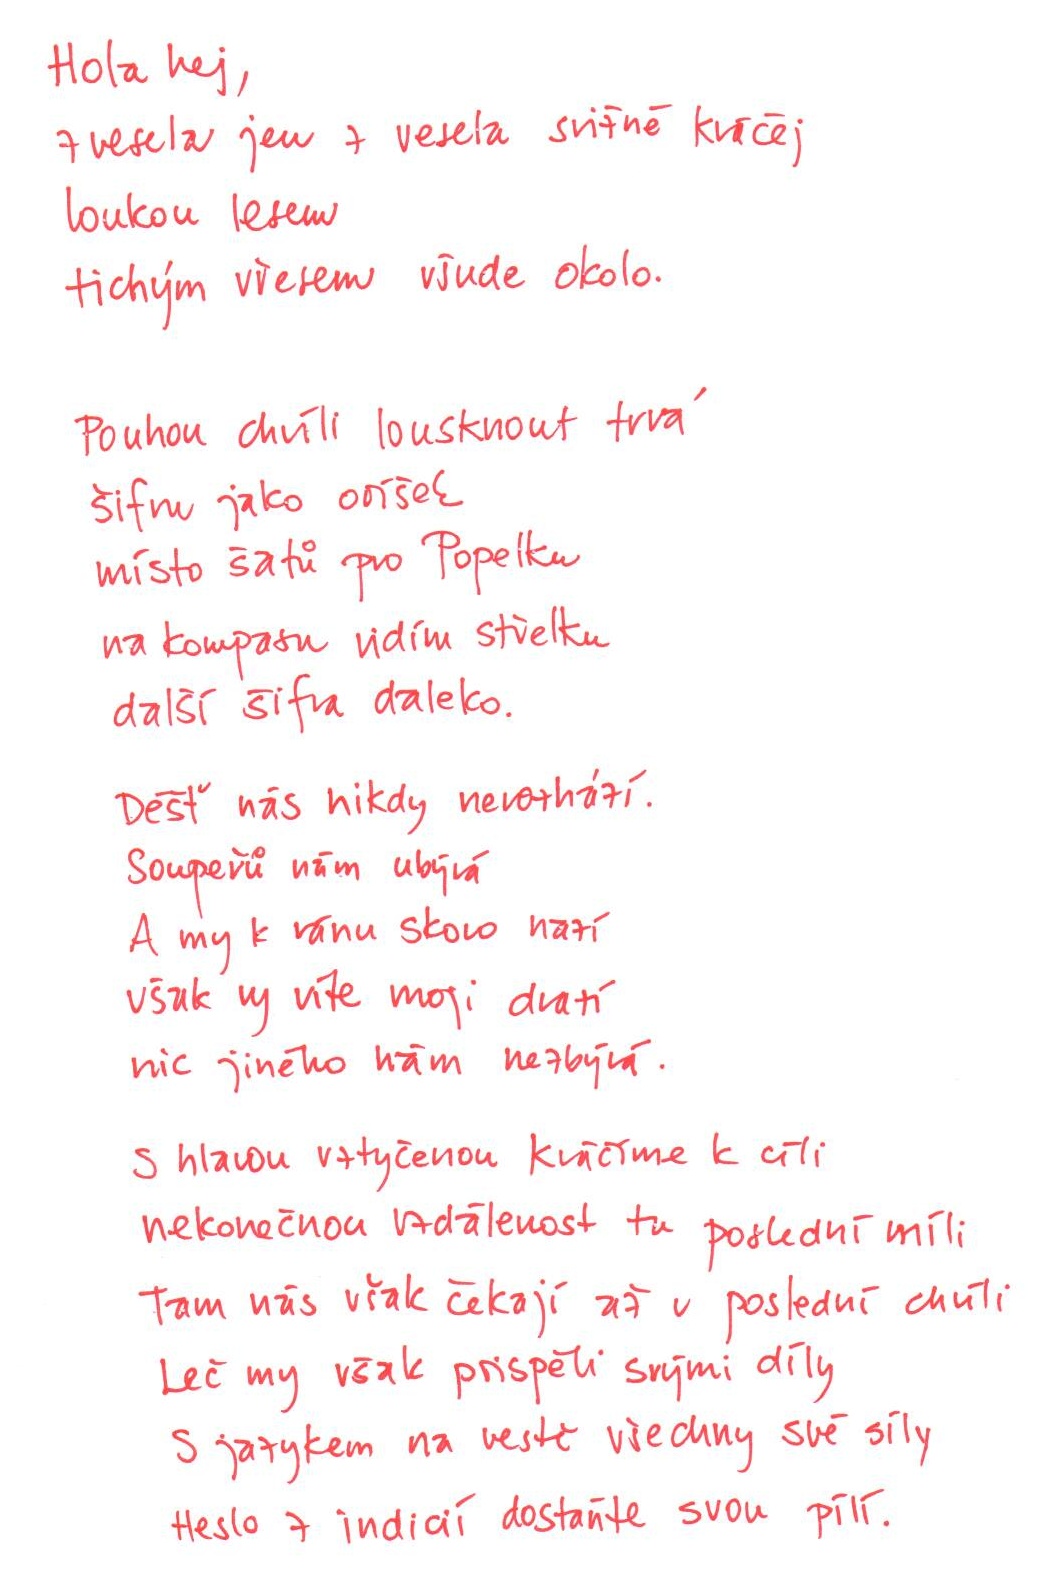 Hola hej,
zvesela jen z vesela svižně kráčej
loukou lesem
tichým vřesem všude okolo.
Pouhou chvíli lousknout trvá
šifru jako oříšek
místo šatů pro Popelku
na kompasu vidím střelku
další šifra daleko.
Déšť nás nikdy nerozhází.
Soupeřů nám ubývá
A my k ránu skoro nazí
však vy víte moji drazí
nic jiného nám nezbývá.
S hlavou vztyčenou kráčíme k cíli
nekonečnou vzdálenost tu poslední míli
Tam nás však čekají až v poslední chvíli
Leč my však prispěli svými díly
S jazykem na vestě všechny své síly
Heslo z indicií dostaňte svou pílí.